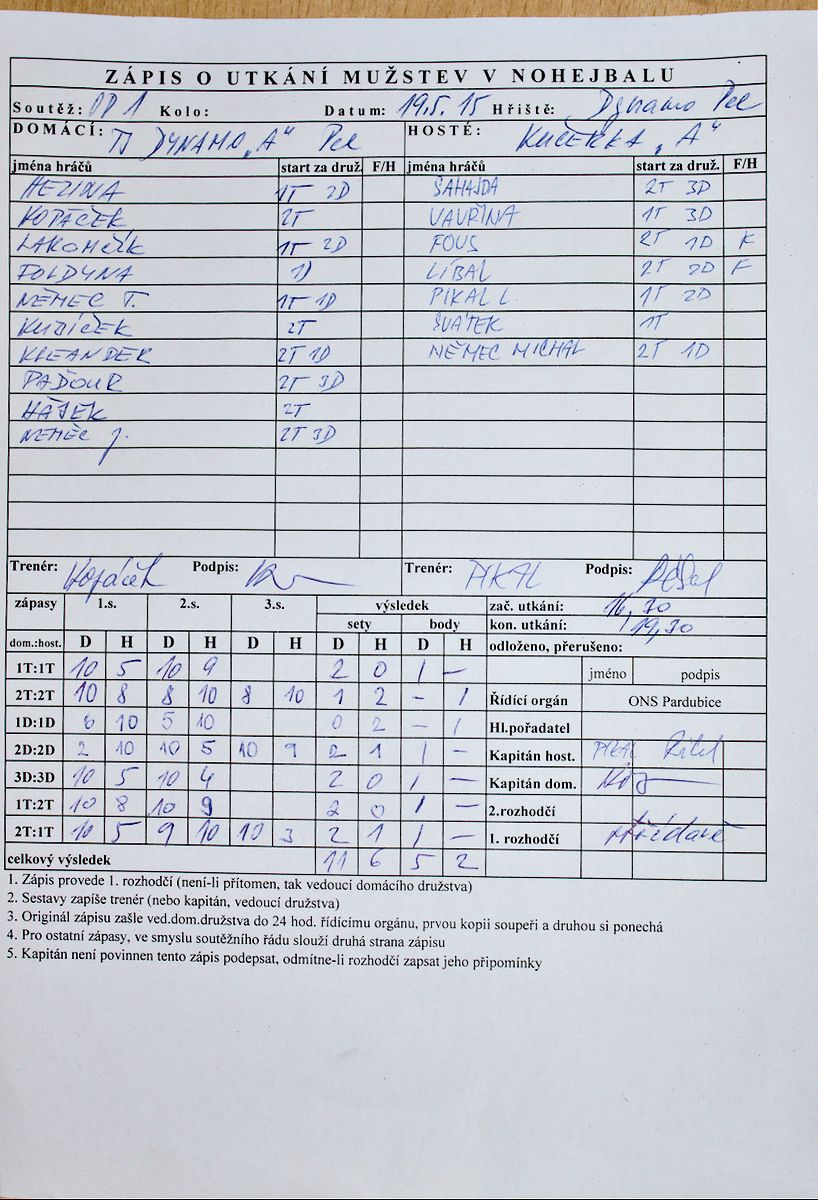 ZÁPIS O UTKÁNÍ MUŽSTEV V NOHEJBALU
Soutěž: OP 1 Kolo: Datum: 19.5.15 Hřiště: Dynamo Pce
DOMÁCÍ: TJ DYNAMO „A“ Pce HOSTÉ: KUČERKA „A“
jména hráčů start za druž. F/H jména hráčů start za druž. F/H
1T 2D ŠAHAJDA 2T 3D
KOPÁČEK 2T VAVŘINA 1T 3D
1T 2D FOUS 2T 1D
FOLDYNA 1D LÍBAL 2T 2D F
NĚMEC T. 1T 1D PIKAL L. 1T 2D
KUBÍČEK 2T SVÁTEK 1T
KREANDER 2T 1D NĚMEC MICHAL 2T 1D
PAĎOUR 2T 3D
HÁJEK 2T
NĚMEC J. 2T 3D
Trenér: Kopáček Podpis: Trenér: PIKAL Podpis:
zápasy 1.s. 2.s. 3.s. výsledek zač. utkání: 16,30
sety body kon. utkání: 19,30
dom.:host. D H D H D H D H D H odloženo, přerušeno:
1T:1T 10 5 10 9 2 0 1 – jméno podpis
2T:2T 10 8 8 10 8 10 1 2 – 1 Řídící orgán ONS Pardubice
1D:1D 6 10 5 10 0 2 – 1 Hl.pořadatel
2D:2D 2 10 10 5 10 9 2 1 1 – Kapitán host. PIKAL
3D:3D 10 5 10 4 2 0 1 – Kapitán dom.
1T:2T 10 8 10 9 2 0 1 – 2.rozhodčí
2T:1T 10 5 9 10 10 3 2 1 1 – 1. rozhodčí
celkový výsledek 11 6 5 2
1. Zápis provede 1. rozhodčí (není-li přítomen, tak vedoucí domácího družstva)
2. Sestavy zapíše trenér (nebo kapitán, vedoucí družstva)
3. Originál zápisu zašle ved.dom.družstva do 24 hod. řídícímu orgánu, prvou kopii soupeři a druhou si ponechá
4. Pro ostatní zápasy, ve smyslu soutěžního řádu slouží druhá strana zápisu
5. Kapitán není povinnen tento zápis podepsat, odmítne-li rozhodčí zapsat jeho připomínky